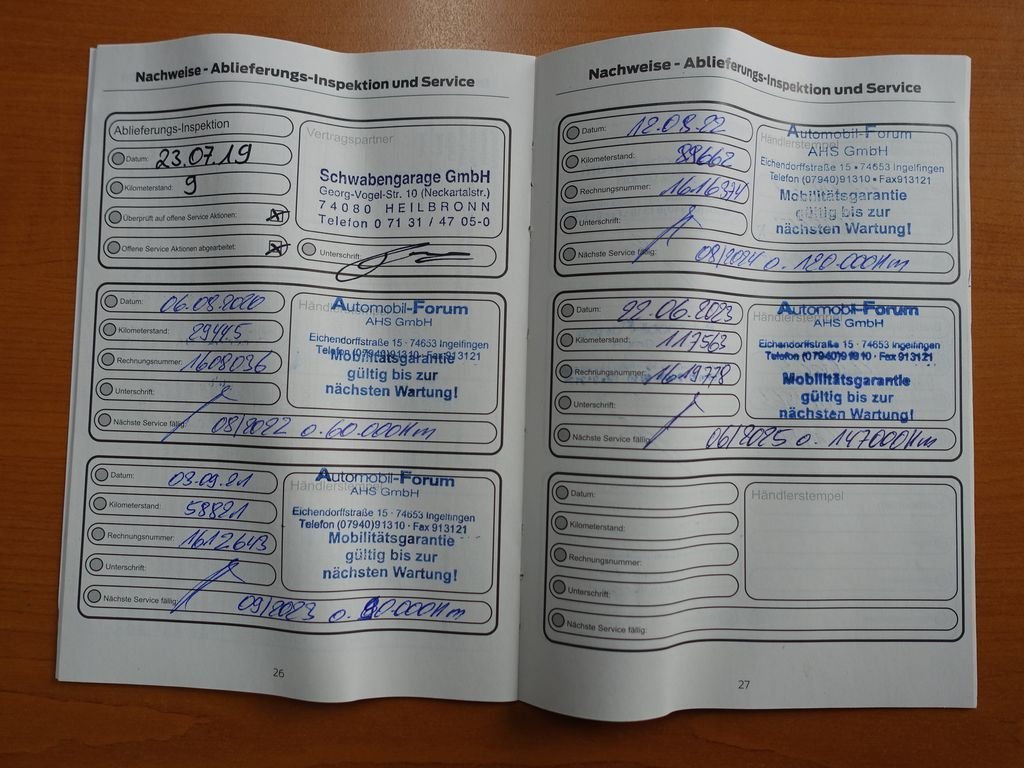 Nachweise - Ablieferungs-Inspektion und Service
Ablieferungs-Inspektion
Datum: 23.07.19
Kilometerstand: 9
Überprüft auf offene Service Aktionen: X
Offene Service Aktionen abgearbeitet: X
Vertragspartner
Schwabengarage GmbH
Georg-Vogel-Str. 10 (Neckartalstr.)
74080 HEILBRONN
Telefon 0 71 31 / 47 05-0
Unterschrift:
Datum: 06.08.2020
Kilometerstand: 29445
Rechnungsnummer: 1608036
Unterschrift:
Nächste Service fällig: 08/2022 o. 60.000Km
Händlerstempel
Automobil-Forum
AHS GmbH
Eichendorffstraße 15 · 74653 Ingelfingen
Telefon (07940)91310 · Fax 913121
Mobilitätsgarantie
gültig bis zur
nächsten Wartung!
Datum: 03.09.21
Kilometerstand: 58821
Rechnungsnummer: 1612643
Unterschrift:
Nächste Service fällig: 09/2023 o. 90.000Km
Händlerstempel
Automobil-Forum
AHS GmbH
Eichendorffstraße 15 · 74653 Ingelfingen
Telefon (07940)91310 · Fax 913121
Mobilitätsgarantie
gültig bis zur
nächsten Wartung!
26
Nachweise - Ablieferungs-Inspektion und Service
Datum: 12.08.22
Kilometerstand: 88662
Rechnungsnummer: 1616394
Unterschrift:
Nächste Service fällig: 08/2024 o. 120.000Km
Händlerstempel
Automobil-Forum
AHS GmbH
Eichendorffstraße 15 · 74653 Ingelfingen
Telefon (07940)91310 · Fax 913121
Mobilitätsgarantie
gültig bis zur
nächsten Wartung!
Datum: 22.06.2023
Kilometerstand: 117563
Rechnungsnummer: 1619778
Unterschrift:
Nächste Service fällig: 06/2025 o. 147000Km
Händlerstempel
Automobil-Forum
AHS GmbH
Eichendorffstraße 15 · 74653 Ingelfingen
Telefon (07940)91310 · Fax 913121
Mobilitätsgarantie
gültig bis zur
nächsten Wartung!
Datum:
Kilometerstand:
Rechnungsnummer:
Unterschrift:
Nächste Service fällig:
Händlerstempel
27